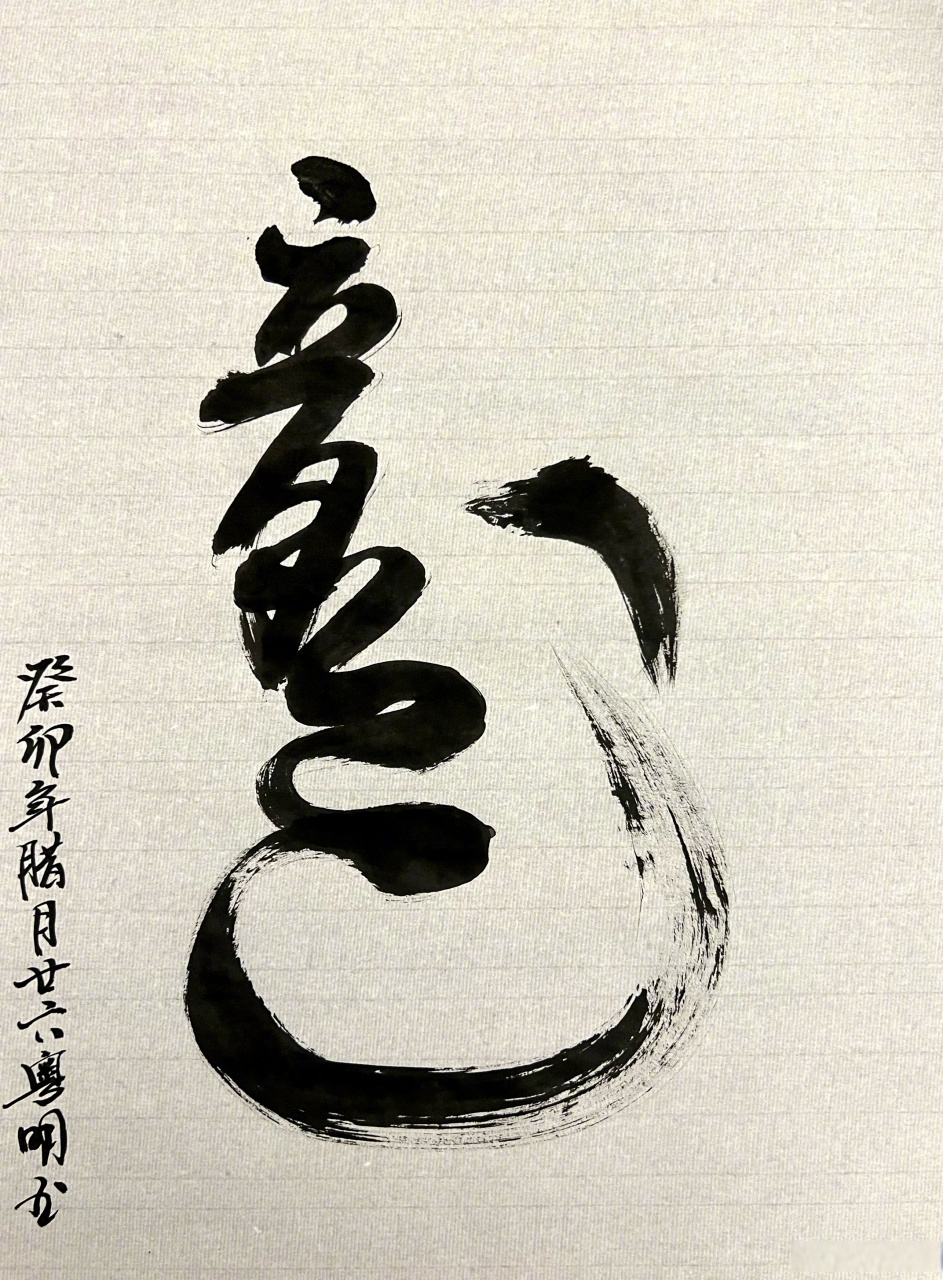 龍
癸卯年腊月廿六粤明书